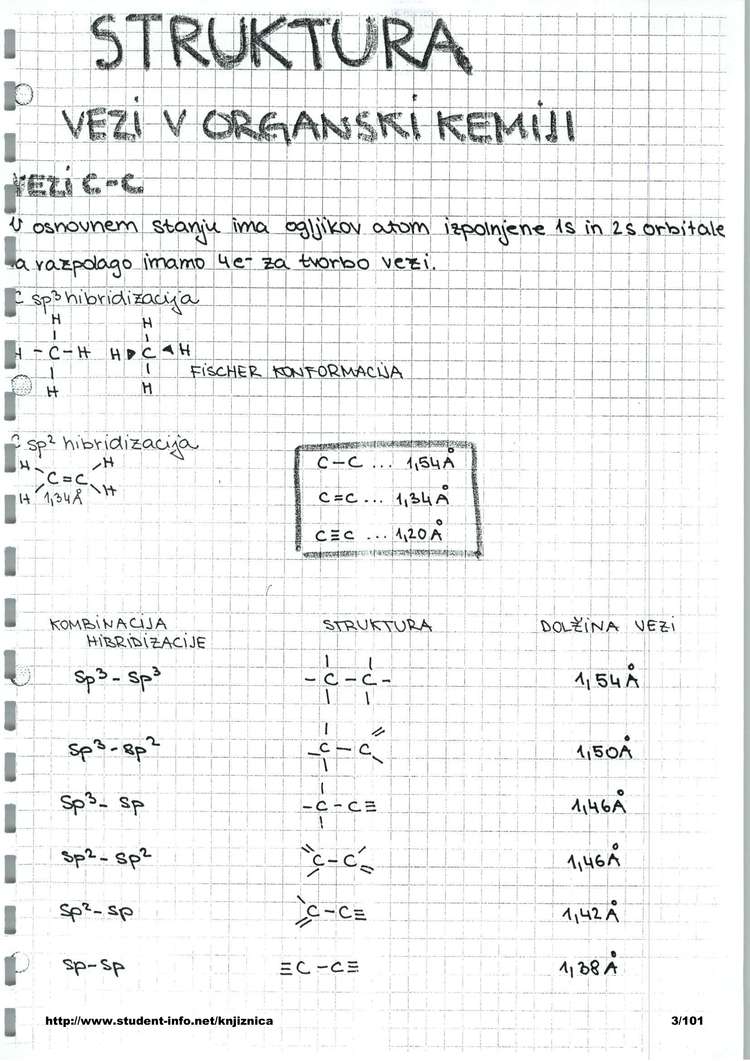 STRUKTURA
VEZI V ORGANSKI KEMIJI
VEZI C-C
V osnovnem stanju ima ogljikov atom izpolnjene 1s in 2s orbitale
na razpolago imamo 4e⁻ za tvorbo vezi.
C sp³ hibridizacija
H H
H - C - H H C H
H H
FISCHER KONFORMACIJA
C sp² hibridizacija
H H
C=C
H 1,34Å H
C-C ... 1,54Å
C=C ... 1,34Å
C≡C ... 1,20Å
KOMBINACIJA HIBRIDIZACIJE STRUKTURA DOLŽINA VEZI
sp³ - sp³ -C-C- 1,54Å
sp³ - sp² -C-C 1,50Å
sp³ - sp -C-C≡ 1,46Å
sp² - sp² C-C= 1,46Å
sp² - sp C-C≡ 1,42Å
sp-sp ≡C-C≡ 1,38Å
http://www.student-info.net/knjiznica 3/101